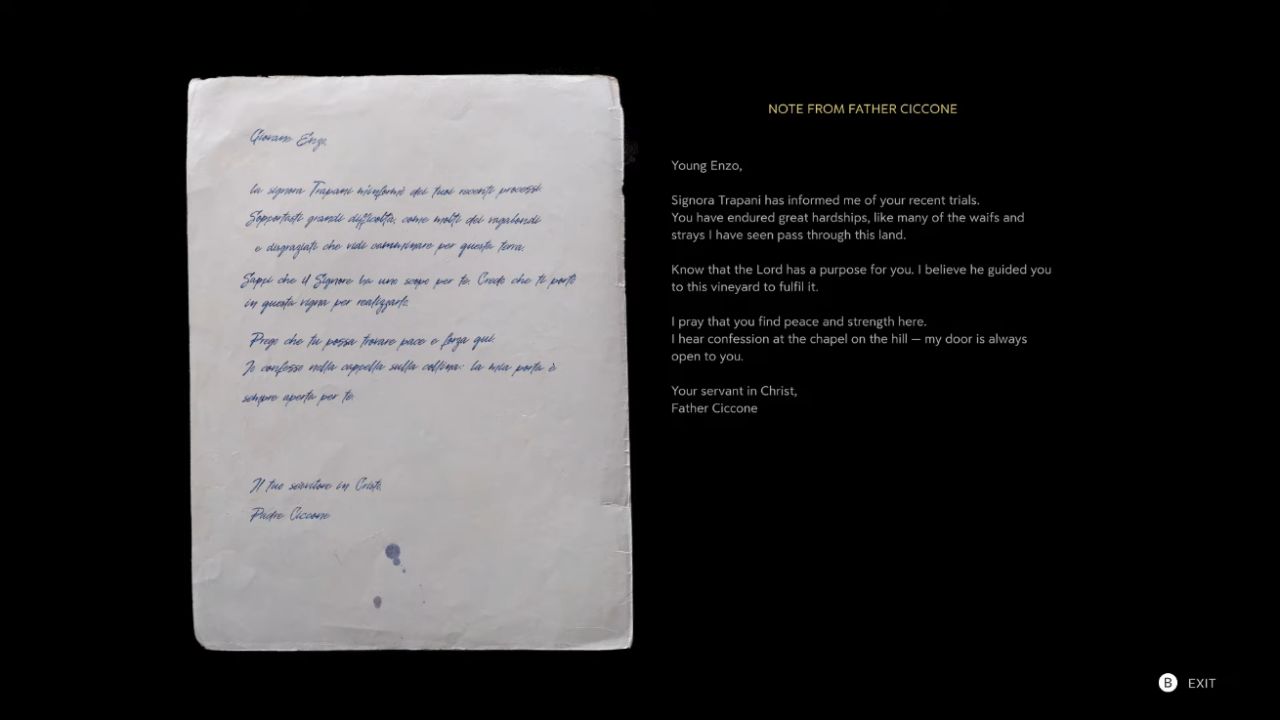 Giovane Enzo,
la signora Trapani m'informò dei tuoi recenti processi.
Sopportasti grandi difficoltà, come molti dei vagabondi
e disgraziati che vidi camminare per questa terra.
Sappi che il Signore ha uno scopo per te. Credo che ti portò
in questa vigna per realizzarlo.
Prego che tu possa trovare pace e forza qui.
Io confesso nella cappella sulla collina: la mia porta è
sempre aperta per te.
Il tuo servitore in Cristo,
Padre Ciccone
NOTE FROM FATHER CICCONE
Young Enzo,
Signora Trapani has informed me of your recent trials.
You have endured great hardships, like many of the waifs and
strays I have seen pass through this land.
Know that the Lord has a purpose for you. I believe he guided you
to this vineyard to fulfil it.
I pray that you find peace and strength here.
I hear confession at the chapel on the hill — my door is always
open to you.
Your servant in Christ,
Father Ciccone
B EXIT